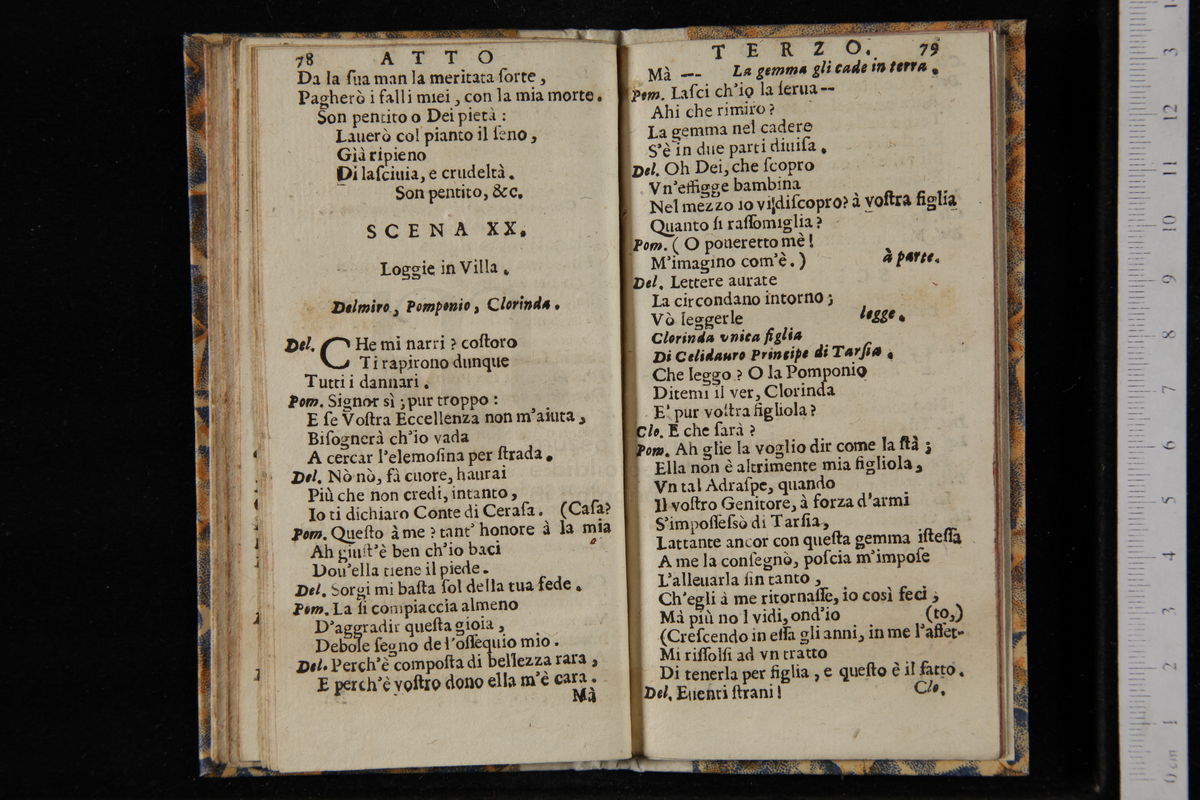 78 ATTO
Da la ſua man la meritata ſorte,
Pagherò i falli miei, con la mia morte.
Son pentito o Dei pietà:
Lauerò col pianto il ſeno,
Già ripieno
Di laſciuia, e crudeltà.
Son pentito, &c.
SCENA XX.
Loggie in Villa.
Delmiro, Pomponio, Clorinda.
Del. CHe mi narri? coſtoro
Ti rapirono dunque
Tutti i dannari.
Pom. Signor sì; pur troppo:
E ſe Voſtra Eccellenza non m'aiuta,
Biſognerà ch'io vada
A cercar l'elemoſina per ſtrada.
Del. Nò nò, fà cuore, haurai
Più che non credi, intanto,
Io ti dichiaro Conte di Ceraſa. (Caſa?
Pom. Queſto à me? tant' honore à la mia
Ah giuſt'è ben ch'io baci
Dou'ella tiene il piede.
Del. Sorgi mi baſta ſol della tua fede.
Pom. La ſi compiaccia almeno
D'aggradir queſta gioia,
Debole ſegno de l'oſſequio mio.
Del. Perch'è compoſta di bellezza rara,
E perch'è voſtro dono ella m'è cara.
Mà
TERZO. 79
Mà -- La gemma gli cade in terra.
Pom. Laſci ch'io la ſerua--
Ahi che rimiro?
La gemma nel cadere
S'è in due parti diuiſa.
Del. Oh Dei, che ſcopro
Vn'effigge bambina
Nel mezzo io vi diſcopro? à voſtra figlia
Quanto ſi raſſomiglia?
Pom. (O poueretto mè!
M'imagino com'è.) à parte.
Del. Lettere aurate
La circondano intorno;
Vò leggerle legge.
Clorinda vnica figlia
Di Celidauro Principe di Tarſia.
Che leggo? O la Pomponio
Ditemi il ver, Clorinda
E' pur voſtra figliola?
Clo. E che ſarà?
Pom. Ah glie la voglio dir come la ſtà;
Ella non è altrimente mia figliola,
Vn tal Adraſpe, quando
Il voſtro Genitore, à forza d'armi
S'impoſſeſsò di Tarſia,
Lattante ancor con queſta gemma iſteſſa
A me la conſegnò, poſcia m'impoſe
L'alleuarla ſin tanto,
Ch'egli à me ritornaſſe, io così feci,
Mà più no l vidi, ond'io (to,)
(Creſcendo in eſſa gli anni, in me l'affet-
Mi riſſolſi ad vn tratto
Di tenerla per figlia, e queſto è il fatto.
Del. Euenti ſtrani! Clo.